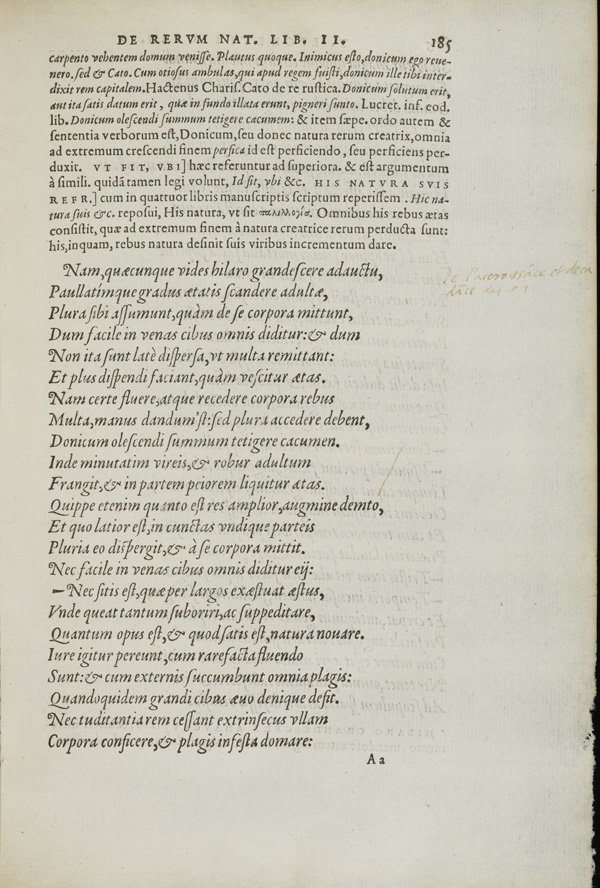 DE RERVM NAT. LIB. II. 185
carpento vehentem domum venisse. Plautus quoque. Inimicus esto, donicum ego reue-
nero. sed & Cato. Cum otiosus ambulas, qui apud regem fuisti, donicum ille tibi inter-
dixit rem capitalem. Hactenus Charis. Cato de re rustica. Donicum solutum erit,
aut ita satis datum erit, quæ in fundo illata erunt, pigneri sunto. Lucret. inf. eod.
lib. Donicum olescendi summum tetigere cacumem: & item sæpe. ordo autem &
sententia verborum est, Donicum, seu donec natura rerum creatrix, omnia
ad extremum crescendi finem perfica id est perficiendo, seu perficiens per-
duxit. VT FIT, VBI] hæc referuntur ad superiora. & est argumentum
à simili. quidã tamen legi volunt, Id fit, vbi &c. HIS NATVRA SVIS
REFR.] cum in quattuor libris manuscriptis scriptum reperissem. Hic na-
tura suis &c. reposui, His natura, vt sit παλιλλογία. Omnibus his rebus ætas
consistit, quæ ad extremum finem à natura creatrice rerum perducta sunt:
his, inquam, rebus natura desinit suis viribus incrementum dare.
Nam, quæcunque vides hilaro grandescere adauctu,
Paullatimque gradus ætatis scandere adultæ,
Plura sibi assumunt, quàm de se corpora mittunt,
Dum facile in venas cibus omnis diditur: & dum
Non ita sunt latè dispersa, vt multa remittant:
Et plus dispendi faciant, quàm vescitur ætas.
Nam certe fluere, atque recedere corpora rebus
Multa, manus dandum'st: sed plura accedere debent,
Donicum olescendi summum tetigere cacumen.
Inde minutatim vireis, & robur adultum
Frangit, & in partem peiorem liquitur ætas.
Quippe etenim quanto est res amplior, augmine demto,
Et quo latior est, in cunctas vndique parteis
Pluria eo dispergit, & à se corpora mittit.
Nec facile in venas cibus omnis diditur eij:
– Nec sitis est, quæ per largos exæstuat æstus,
Vnde queat tantum suboriri, ac suppeditare,
Quantum opus est, & quod satis est, natura nouare.
Iure igitur pereunt, cum rarefacta fluendo
Sunt: & cum externis succumbunt omnia plagis:
Quandoquidem grandi cibus æuo denique defit.
Nec tuditantia rem cessant extrinsecus vllam
Corpora conficere, & plagis infesta domare:
Aa